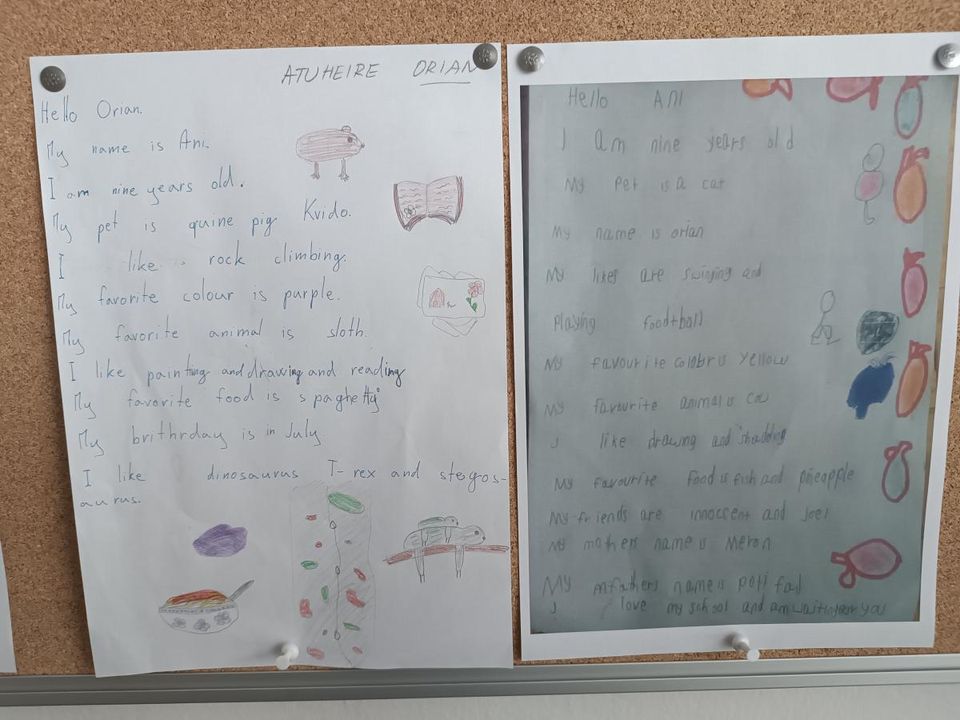 ATUHEIRE ORIAN
Hello Orian.
My name is Ani.
I am nine years old.
My pet is quine pig Kvido.
I like rock climbing.
My favorite colour is purple.
My favorite animal is sloth.
I like painting and drawing and reading
My favorite food is spaghetty
My brithrday is in July
I like dinosaurus T-rex and stegos-
aurus.
Hello ANI
I am nine years old
My pet is a cat
My name is orian
My likes are swinging and
playing foodtball
My favourite colour is yellow
My favourite animal is cow
I like drawing and shadding
My favourite food is fish and pineapple
My friends are innoccent and joel
My mothers name is Meron
My fathers name is
I love my school and am waiting for you